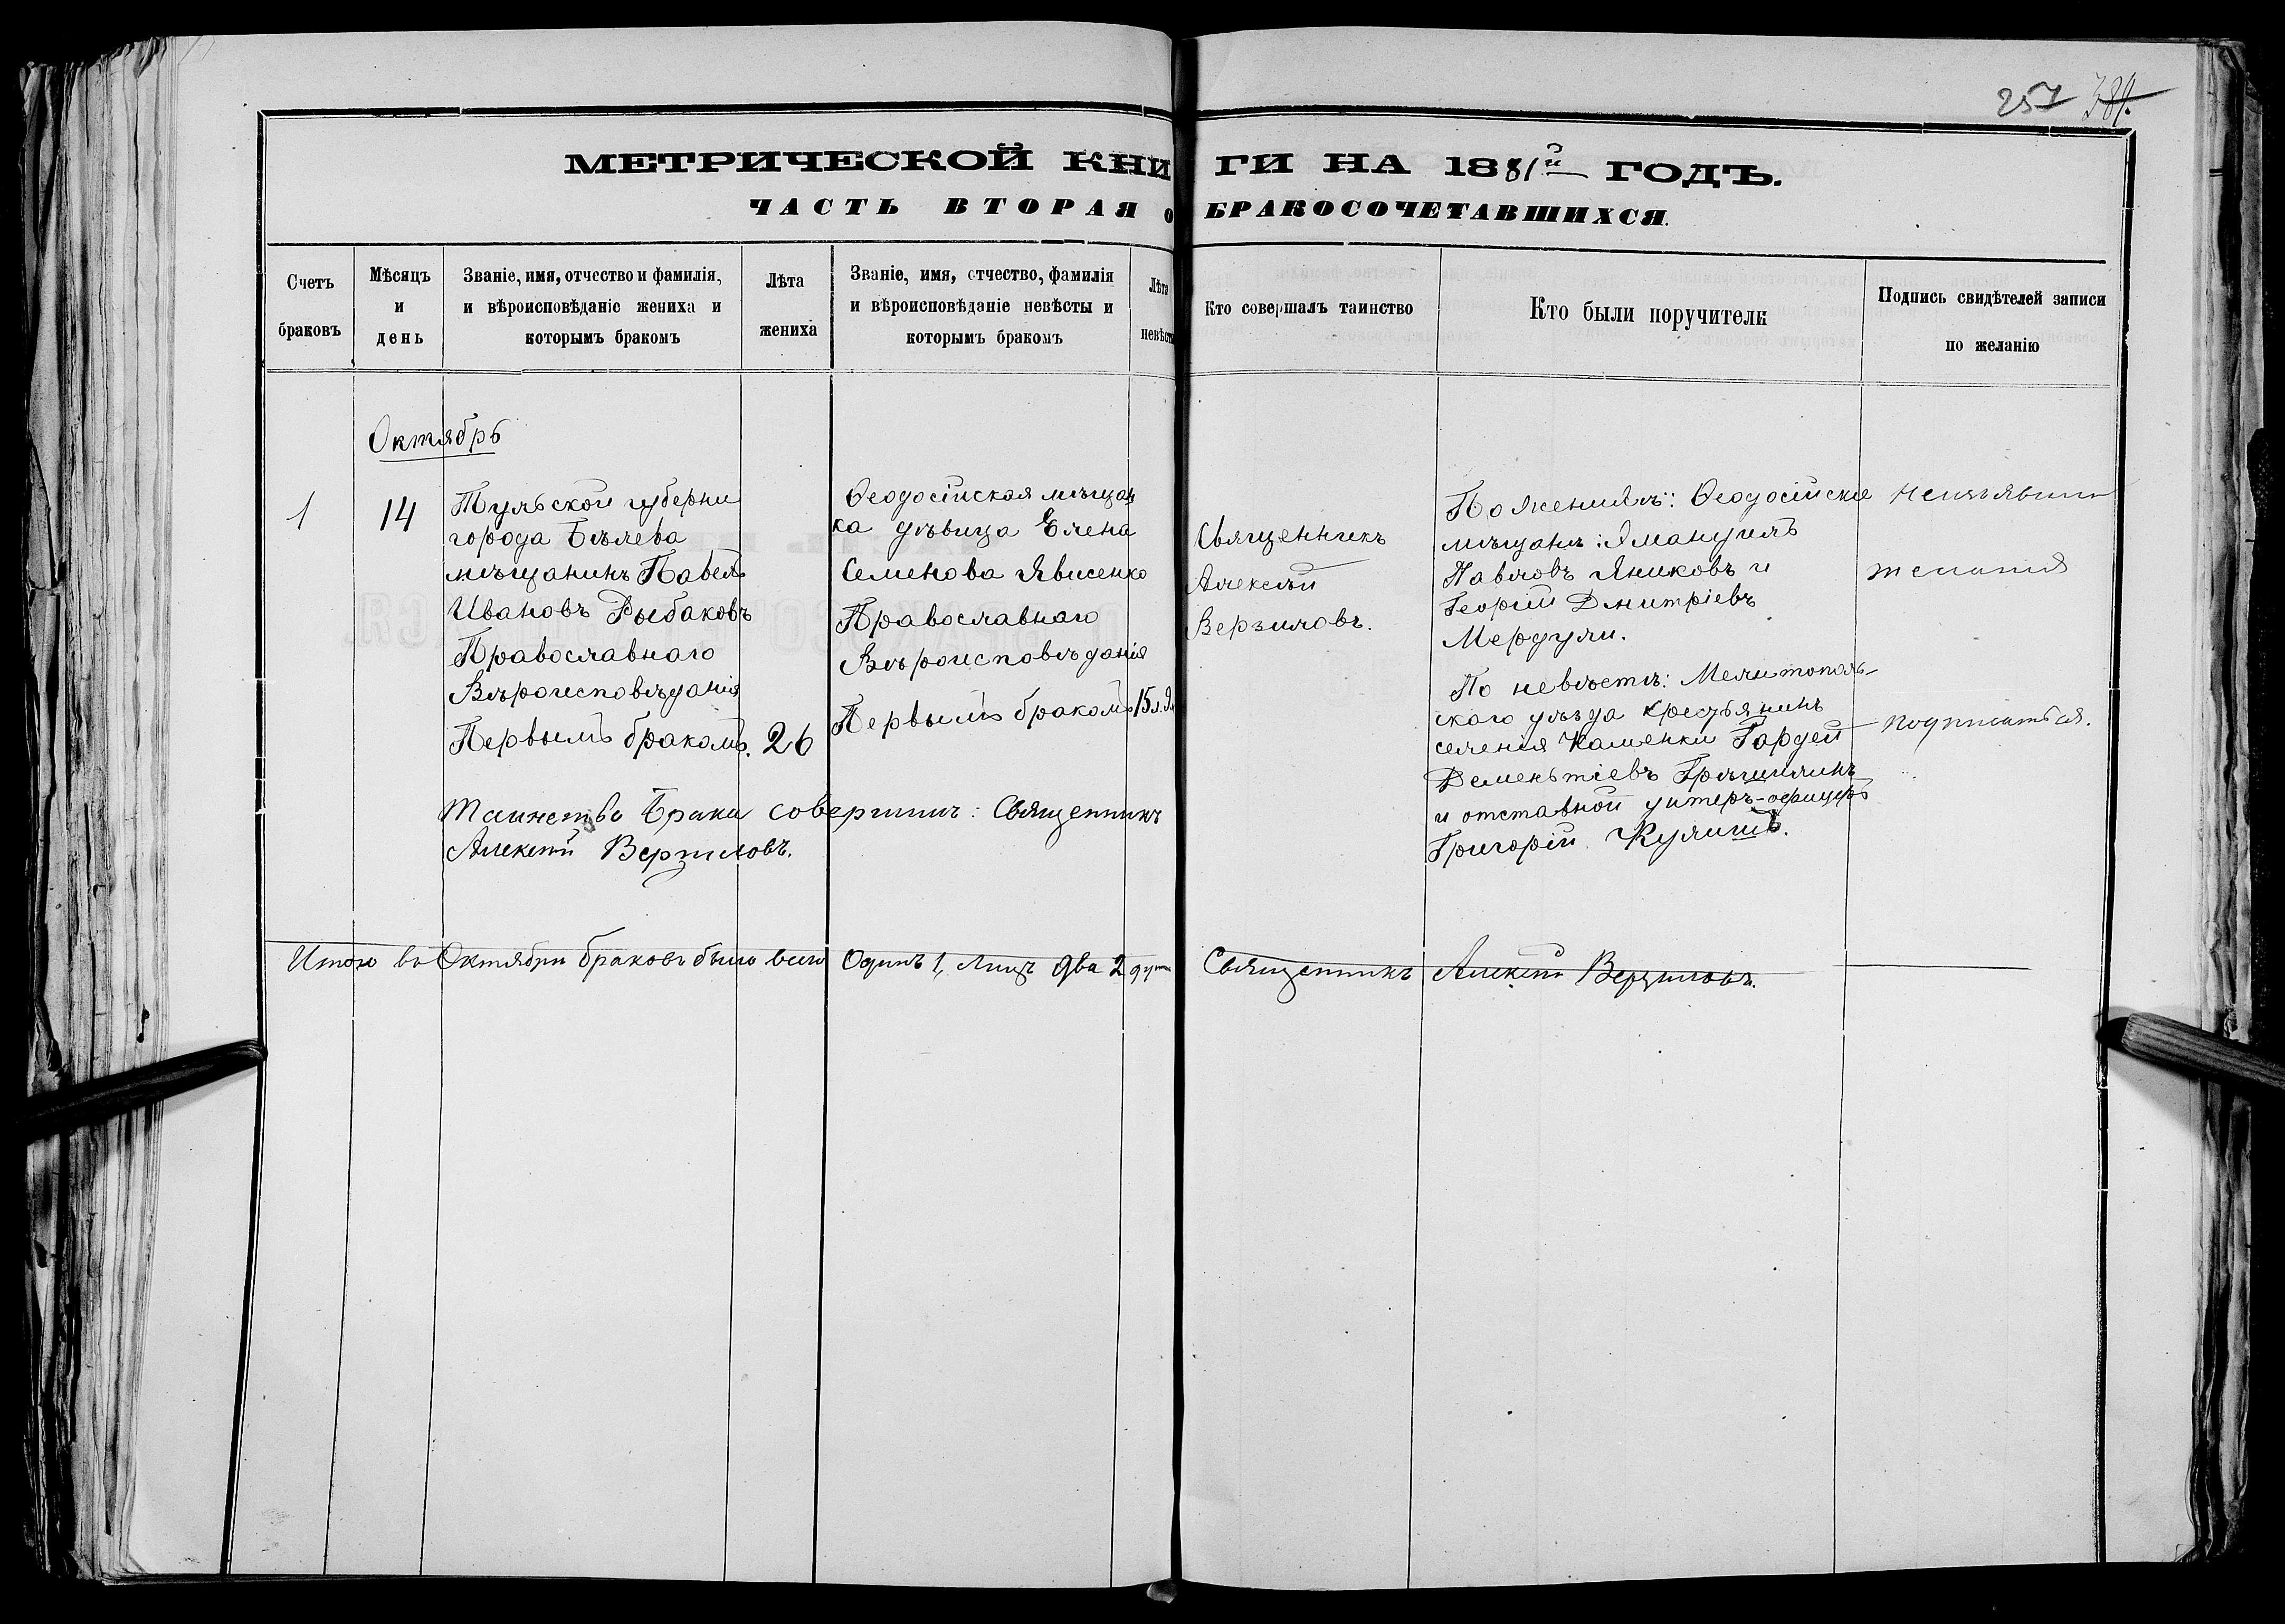 257 381.
МЕТРИЧЕСКОЙ КНИГИ НА 1881й ГОДЪ.
ЧАСТЬ ВТОРАЯ О БРАКОСОЧЕТАВШИХСЯ.
Счетъ браковъ
Мѣсяцъ и день
Званіе, имя, отчество и фамилія,
и вѣроисповѣданіе жениха и
которымъ бракомъ
Лѣта жениха
Званіе, имя, отчество, фамилія
и вѣроисповѣданіе невѣсты и
которымъ бракомъ
Лѣта невѣсты
Кто совершалъ таинство
Кто были поручители
Подпись свидѣтелей записи
по желанію
Октябрь
1
14
Тульской губерни
города Бѣлева
мѣщанинъ Павелъ
Ивановъ Рыбаковъ
Православнаго
Вѣроисповѣданія
Первымъ бракомъ.
26
Ѳеодосійская мѣщан
ка дѣвица Елена
Семенова Явисенко
Православнаго
Вѣроисповѣданія
Первымъ бракомъ
15
Священникъ
Алексѣй
Верзиловъ.
По женихѣ: Ѳеодосійскіе
мѣщане: Ямануилъ
Павловъ Яниковъ и
Георгій Дмитріевъ
Мердули.
По невѣстѣ: Мелитополь-
скаго уѣзда крестьянинъ
селенія Каменки Гордей
Деменьтіевъ
и отставной унтеръ-офицеръ
Григорій Кулишъ.
Неизъявили
желанія
подписаться.
Таинство Брака совершилъ: Священникъ
Алексѣй Верзиловъ.
Итого въ Октябрѣ браковъ было всего Одинъ 1, Лицъ два 2 души
Священникъ Алексѣй Верзиловъ.